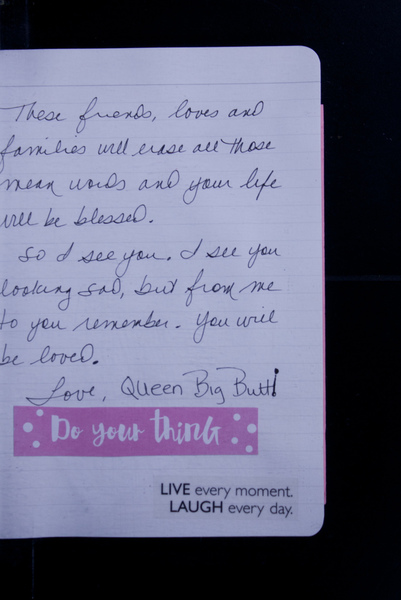 These friends, loves and
families will erase all those
mean words and your life
will be blessed.
So I see you. I see you
looking sad, but from me
to you remember. You will
be loved.
Love, Queen Big Butt!
Do your thing
LIVE every moment.
LAUGH every day.